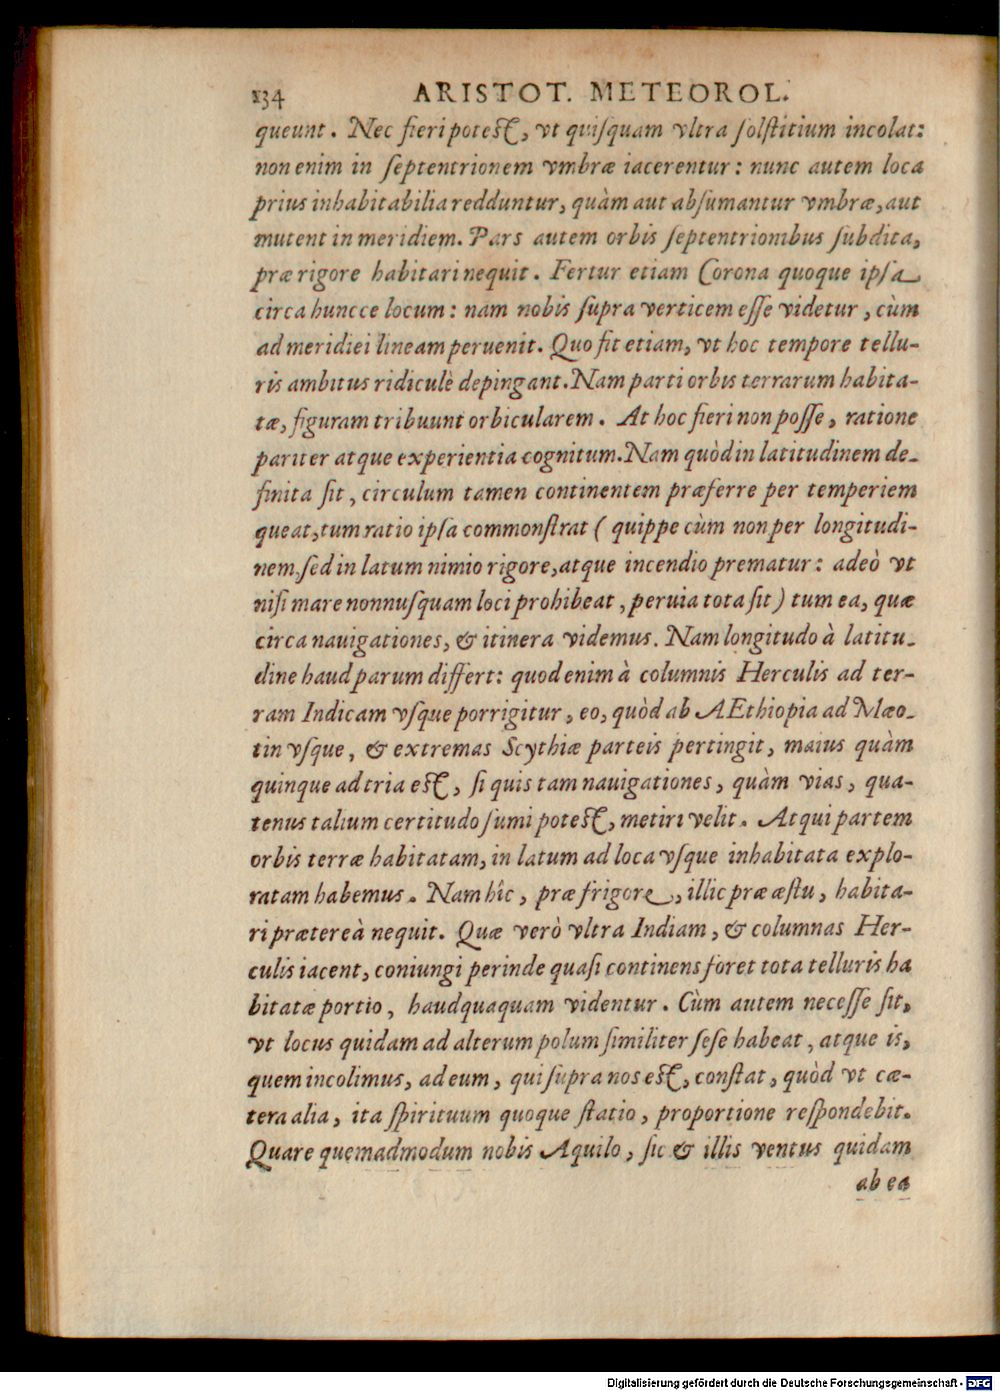 134 ARISTOT. METEOROL.
queunt. Nec fieri potest, vt quisquam vltra solstitium incolat:
non enim in septentrionem vmbræ iacerentur: nunc autem loca
prius inhabitabilia redduntur, quàm aut absumantur vmbræ, aut
mutent in meridiem. Pars autem orbis septentrionibus subdita,
præ rigore habitari nequit. Fertur etiam Corona quoque ipsa
circa huncce locum: nam nobis supra verticem esse videtur, cùm
ad meridiei lineam peruenit. Quo fit etiam, vt hoc tempore tellu-
ris ambitus ridiculè depingant. Nam parti orbis terrarum habita-
tæ, figuram tribuunt orbicularem. At hoc fieri non posse, ratione
pariter atque experientia cognitum. Nam quòd in latitudinem de-
finita sit, circulum tamen continentem præferre per temperiem
queat, tum ratio ipsa commonstrat ( quippe cùm non per longitudi-
nem, sed in latum nimio rigore, atque incendio prematur: adeò vt
nisi mare nonnusquam loci prohibeat, peruia tota sit ) tum ea, quæ
circa nauigationes, & itinera videmus. Nam longitudo à latitu-
dine haud parum differt: quod enim à columnis Herculis ad ter-
ram Indicam vsque porrigitur, eo, quòd ab AEthiopia ad Mæo-
tin vsque, & extremas Scythiæ parteis pertingit, maius quàm
quinque ad tria est, si quis tam nauigationes, quàm vias, qua-
tenus talium certitudo sumi potest, metiri velit. Atqui partem
orbis terræ habitatam, in latum ad loca vsque inhabitata explo-
ratam habemus. Nam hîc, præ frigore, illic præ æstu, habita-
ri prætereà nequit. Quæ verò vltra Indiam, & columnas Her-
culis iacent, coniungi perinde quasi continens foret tota telluris ha
bitatæ portio, haudquaquam videntur. Cùm autem necesse sit,
vt locus quidam ad alterum polum similiter sese habeat, atque is,
quem incolimus, ad eum, qui supra nos est, constat, quòd vt cæ-
tera alia, ita spirituum quoque statio, proportione respondebit.
Quare quemadmodum nobis Aquilo, sic & illis ventus quidam
ab ea
Digitalisierung gefördert durch die Deutsche Forschungsgemeinschaft - DFG